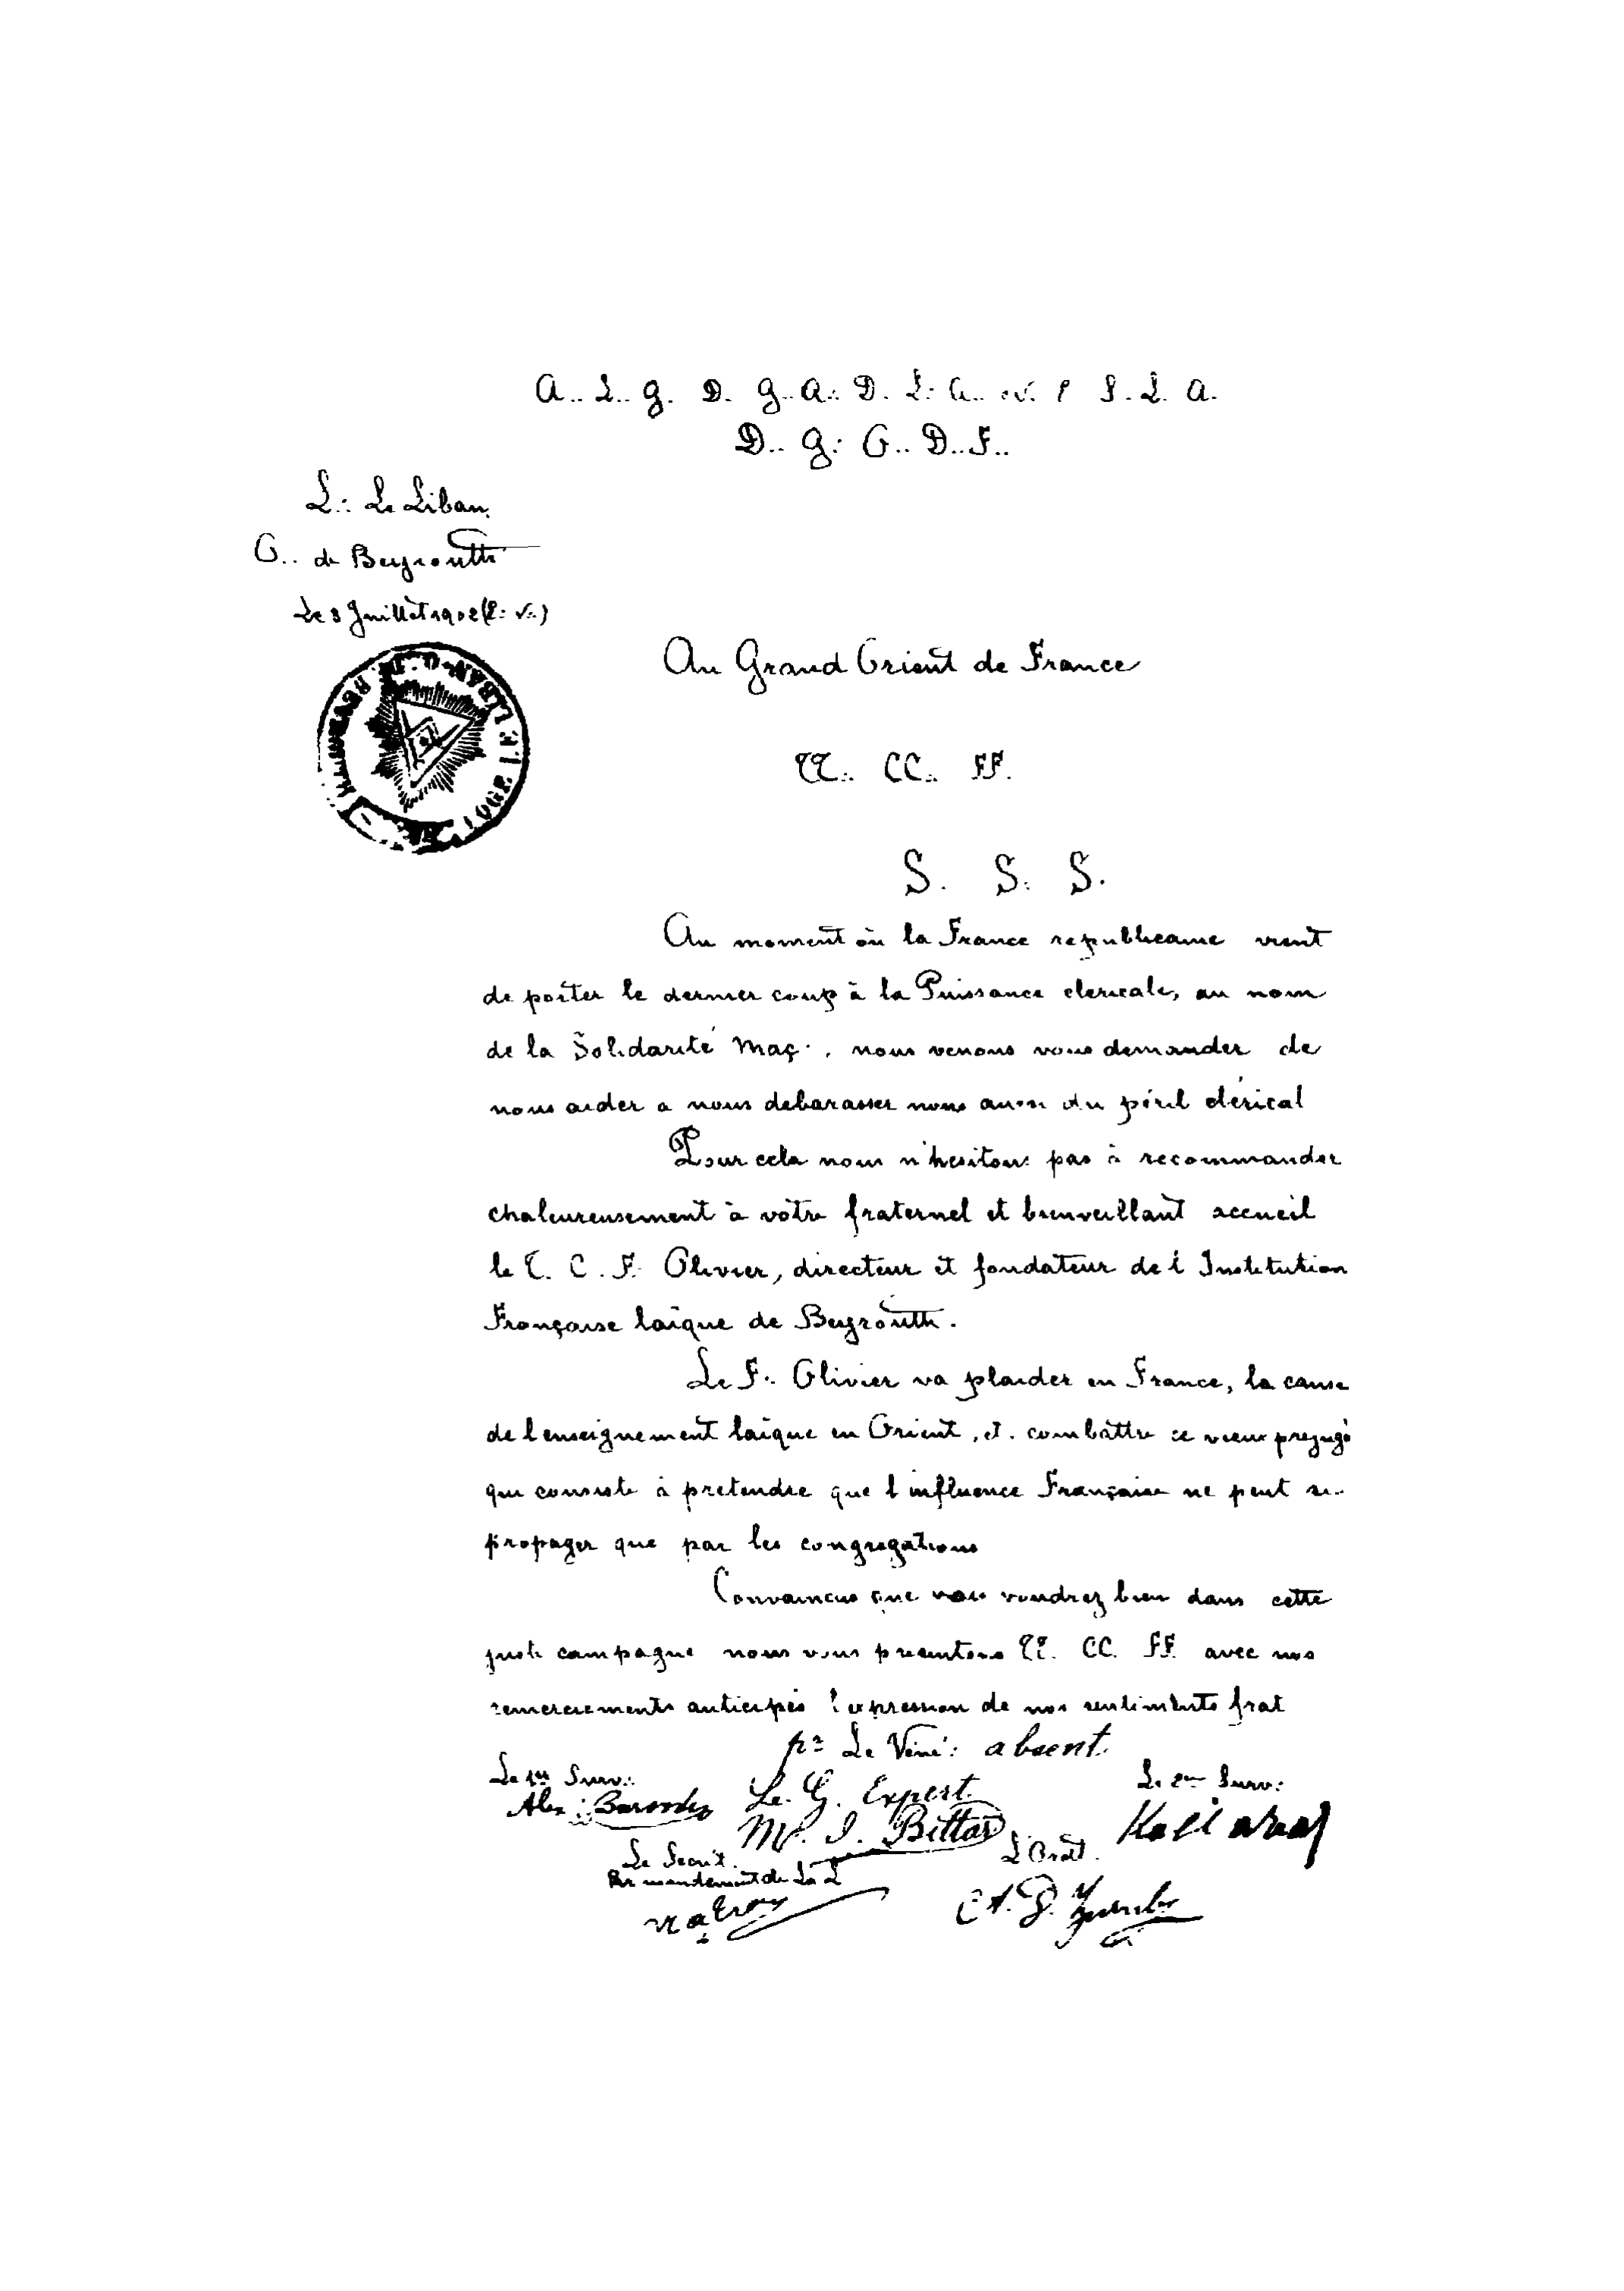 A.. L.. G. D. G.. A.: D. L.: U.. S. L. A.
D.. G.: O.. D.. F..
L.: Le Liban
O.. de Beyrouth
Le 3 Juillet 1902 (E.: V.:)
LOGE LE LIBAN - O. DE BEYROUTH
Au Grand Orient de France
TT.: CC.. FF.
S. S.: S.
Au moment où la France republicaine vient
de porter le dernier coup à la Puissance clericale, au nom
de la Solidarité Maç.., nous venons vous demander de
nous aider a nous debarasser nous aussi du péril clérical
Pour cela nous n'hesitons pas à recommander
chaleureusement à votre fraternel et bienveillant accueil
le T. C. F. Olivier, directeur et fondateur de l'Institution
Française laïque de Beyrouth.
Le F.. Olivier va plaider en France, la cause
de lenseignement laïque en Orient, et combattre ce vieux prejugé
qui consiste à pretendre que l'influence Française ne peut se
propager que par les congregations
Convaincus que vous voudrez bien dans cette
juste campagne nous vous presentons TT. CC. FF. avec nos
remerciements anticipés l'expression de nos sentiments frat
pr Le Véné.: absent.
Le 1er Surv.: Le 2me Surv.:
Alex Le. G. Expert.
M. I. Bittar
Le Secrét. L'Orat.
Par mandement de La L